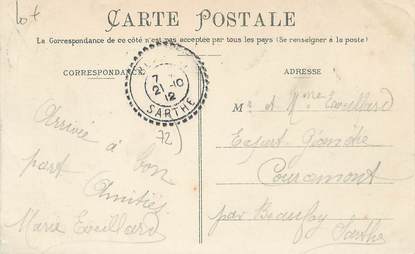 Lot
CARTE POSTALE
La Correspondance de ce côté n'est pas acceptée par tous les pays (Se renseigner à la poste)
CORRESPONDANCE
ADRESSE
7
21-10
12
SARTHE
72
Arrivée à bon
part
Amitiés
Marie Eveillard
Mr et Mme Eveillard
Courcemont
par Beaufay
Sarthe